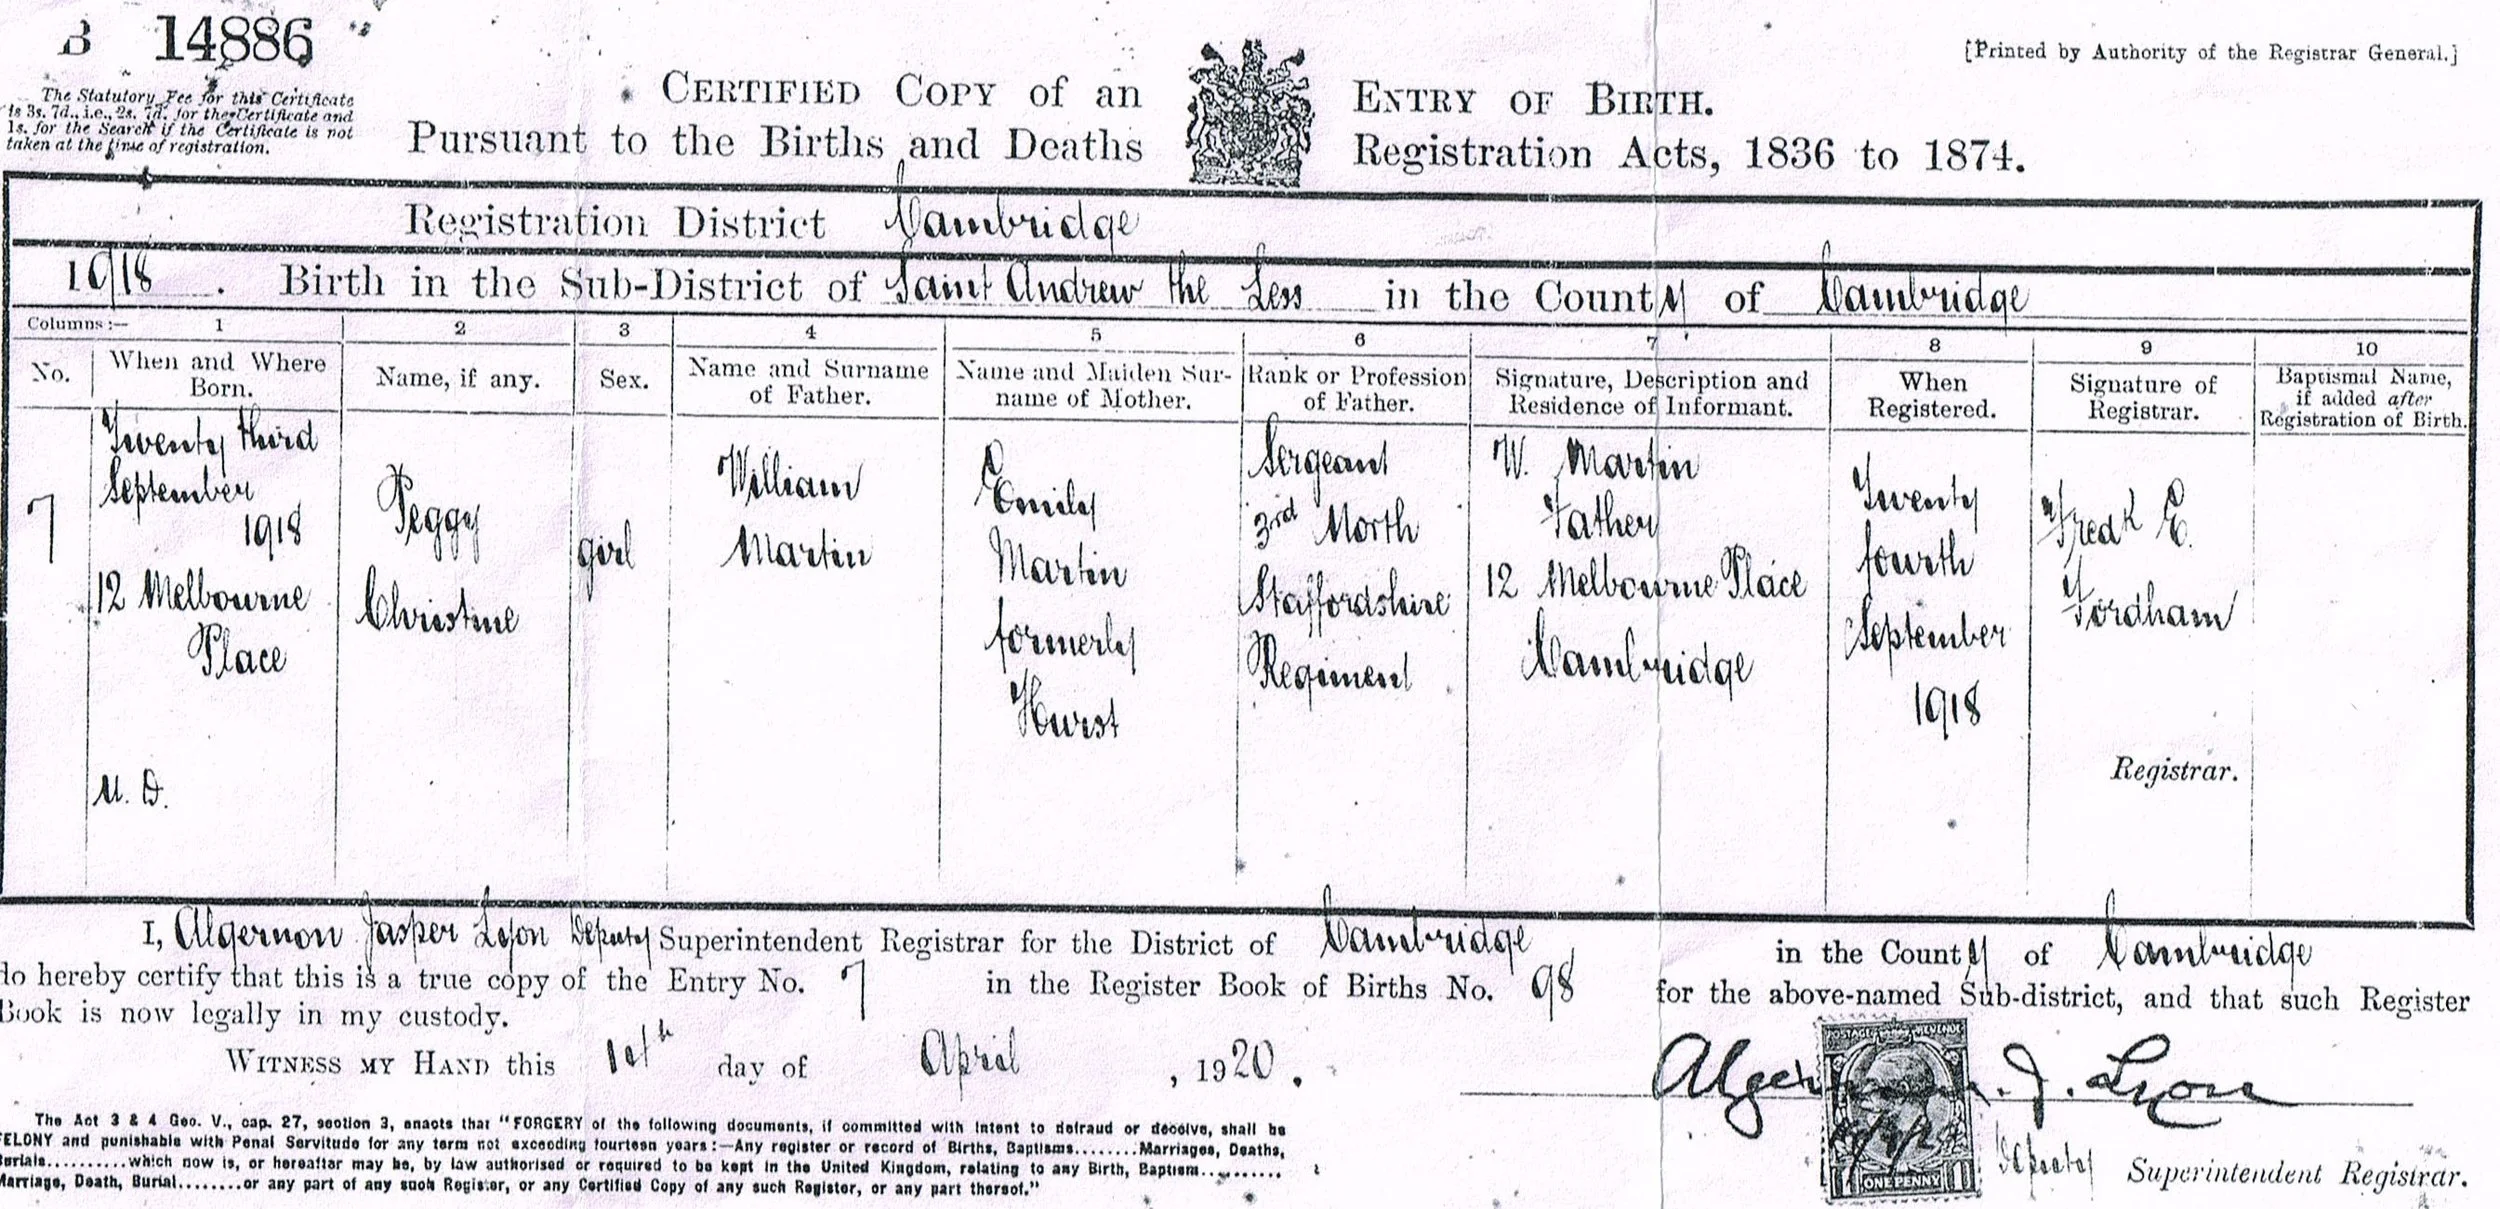 B 14886
[Printed by Authority of the Registrar General.]
The Statutory Fee for this Certificate
is 3s. 7d., i.e., 2s. 7d. for the Certificate and
1s. for the Search if the Certificate is not
taken at the time of registration.
CERTIFIED COPY of an ENTRY OF BIRTH.
Pursuant to the Births and Deaths Registration Acts, 1836 to 1874.
Registration District Cambridge
1918 . Birth in the Sub-District of Saint Andrew the Less in the County of Cambridge
Columns:— 1 2 3 4 5 6 7 8 9 10
No.
When and Where
Born.
Name, if any.
Sex.
Name and Surname
of Father.
Name and Maiden Sur-
name of Mother.
Rank or Profession
of Father.
Signature, Description and
Residence of Informant.
When
Registered.
Signature of
Registrar.
Baptismal Name,
if added after
Registration of Birth.
7
Twenty third
September
1918
12 Melbourne
Place
U. D.
Peggy
Christine
girl
William
Martin
Emily
Martin
formerly
Hurst
Sergeant
3rd North
Staffordshire
Regiment
W. Martin
Father
12 Melbourne Place
Cambridge
Twenty
fourth
September
1918
E.
Fordham
Registrar.
I, Algernon Jasper Lyon Deputy Superintendent Registrar for the District of Cambridge in the County of Cambridge
do hereby certify that this is a true copy of the Entry No. 7 in the Register Book of Births No. 98 for the above-named Sub-district, and that such Register
Book is now legally in my custody.
WITNESS MY HAND this day of April , 1920.
Algernon J. Lyon
POSTAGE REVENUE
1 ONE PENNY 1
Deputy Superintendent Registrar.
The Act 3 & 4 Geo. V., cap. 27, section 3, enacts that "FORGERY of the following documents, if committed with intent to defraud or deceive, shall be
FELONY and punishable with Penal Servitude for any term not exceeding fourteen years:—Any register or record of Births, Baptisms........Marriages, Deaths,
Burials..........which now is, or hereafter may be, by law authorised or required to be kept in the United Kingdom, relating to any Birth, Baptism..........
Marriage, Death, Burial........or any part of any such Register, or any Certified Copy of any such Register, or any part thereof."